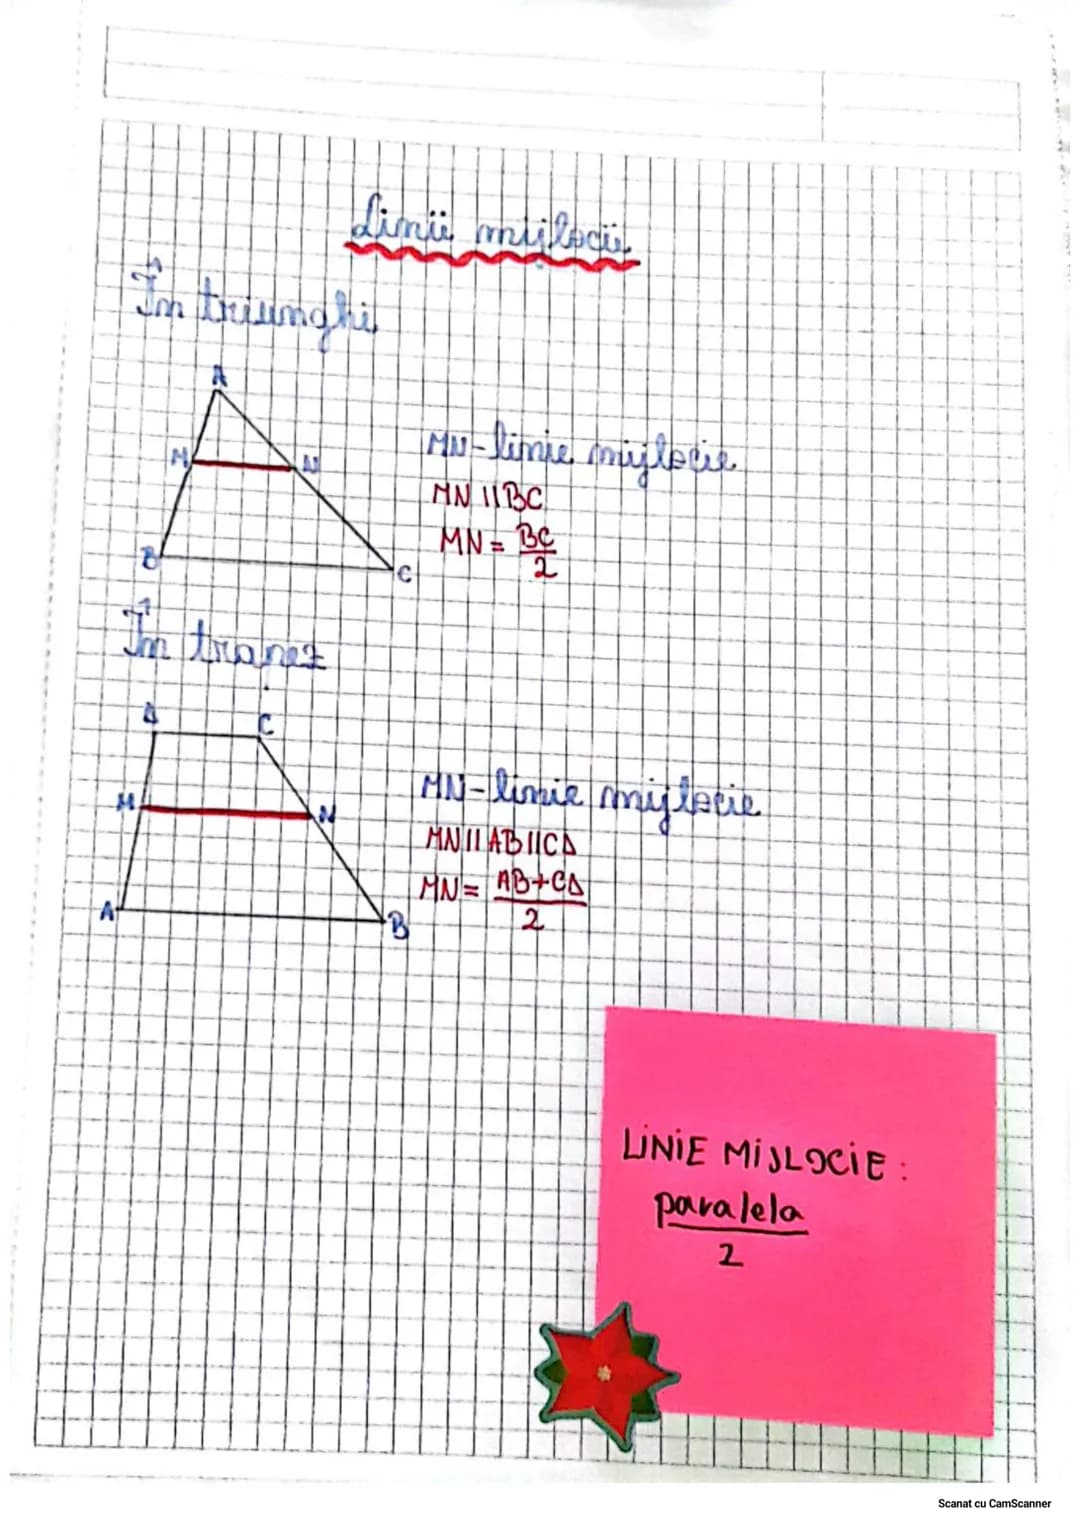 Linii mijlocii
În triunghi
A
M N
B C
MN-linie mijlocie
MN || BC
MN = BC/2
În trapez
Δ C
M N
A B
MN-linie mijlocie
MN || AB || CΔ
MN = AB+CΔ/2
LINIE MIJLOCIE:
paralela
2
Scanat cu CamScanner